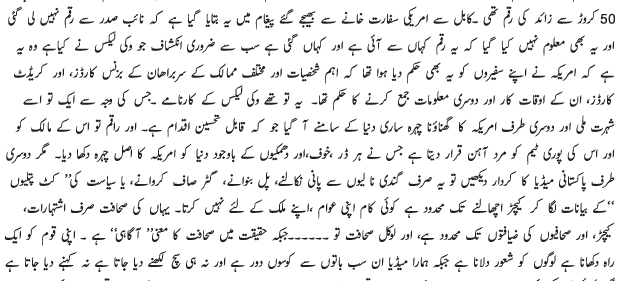 50 کروڑ سے زائد کی رقم تھی۔کابل سے امریکی سفارت خانے سے بھیجے گئے پیغام میں یہ بتایا گیا ہے کہ نائب صدر سے رقم نہیں لی گئی
اور یہ بھی معلوم نہیں کیا گیا کہ یہ رقم کہاں سے آئی ہے اور کہاں گئی ہے سب سے ضروری انکشاف جو وکی لیکس نے کیاہے وہ یہ
ہے کہ امریکہ نے اپنے سفیروں کو یہ بھی حکم دیا ہوا تھا کہ اہم شخصیات اور مختلف ممالک کے سربراھان کے بزنس کارڈز، اور کریڈٹ
کارڈز، ان کے اوقات کار اور دوسری معلومات جمع کرنے کا حکم تھا۔ یہ تو تھے وکی لیکس کے کارنامے ۔جس کی وجہ سے ایک تو اسے
شہرت ملی اور دوسری طرف امریکہ کا گھناؤنا چہرہ ساری دنیا کے سامنے آ گیا جو کہ قابل تحسین اقدام ہے۔ اور راقم تو اس کے مالک کو
اور اس کی پوری ٹیم کو مرد آہن قرار دیتا ہے جس نے ہر ڈر ،خوف،اور دھمکیوں کے باوجود دنیا کو امریکہ کا اصل چہرہ دکھا دیا۔ مگر دوسری
طرف پاکستانی میڈیا کا کردار دیکھیں تو یہ صرف گندی نالیوں سے پانی نکالنے، پل بنوانے، گٹر صاف کروانے، یا سیاست کی” کٹ پتلیوں
“کے بیانات لگا کر کیچڑ اچھالنے تک محدود ہے کوئی کام اپنی عوام ،اپنے ملک کے لئے نہیں کرتا۔ یہاں کی صحافت صرف اشتہارات،
کیچڑ، اور صحافیوں کی ضیافتوں تک محدود ہے،اور لوکل صحافت تو ۔۔۔۔۔۔جبکہ حقیقت میں صحافت کا معنیٰ” آگاہی“ ہے ۔ اپنی قوم کو ایک
راہ دکھانا ہے لوگوں کو شعور دلانا ہے جبکہ ہمارا میڈیا ان سب باتوں سے کوسوں دور ہے اور نہ ہی سچ لکھنے دیا جاتا ہے نہ کہنے دیا جاتا ہے